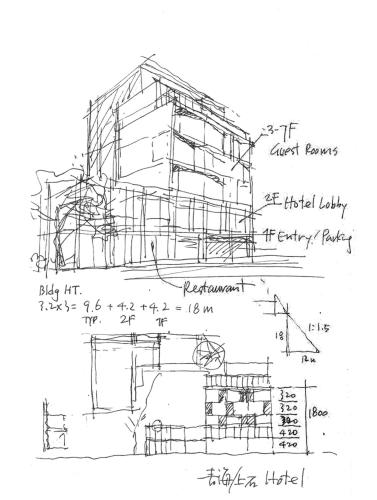 3-7F
Guest Rooms
2F Hotel Lobby
1F Entry/Parking
Restaurant
Bldg HT.
3.2x3= 9.6 + 4.2 + 4.2 = 18 m
TYP. 2F 1F
18
1:1.5
12m
320
320
320
420
420
1800
Hotel